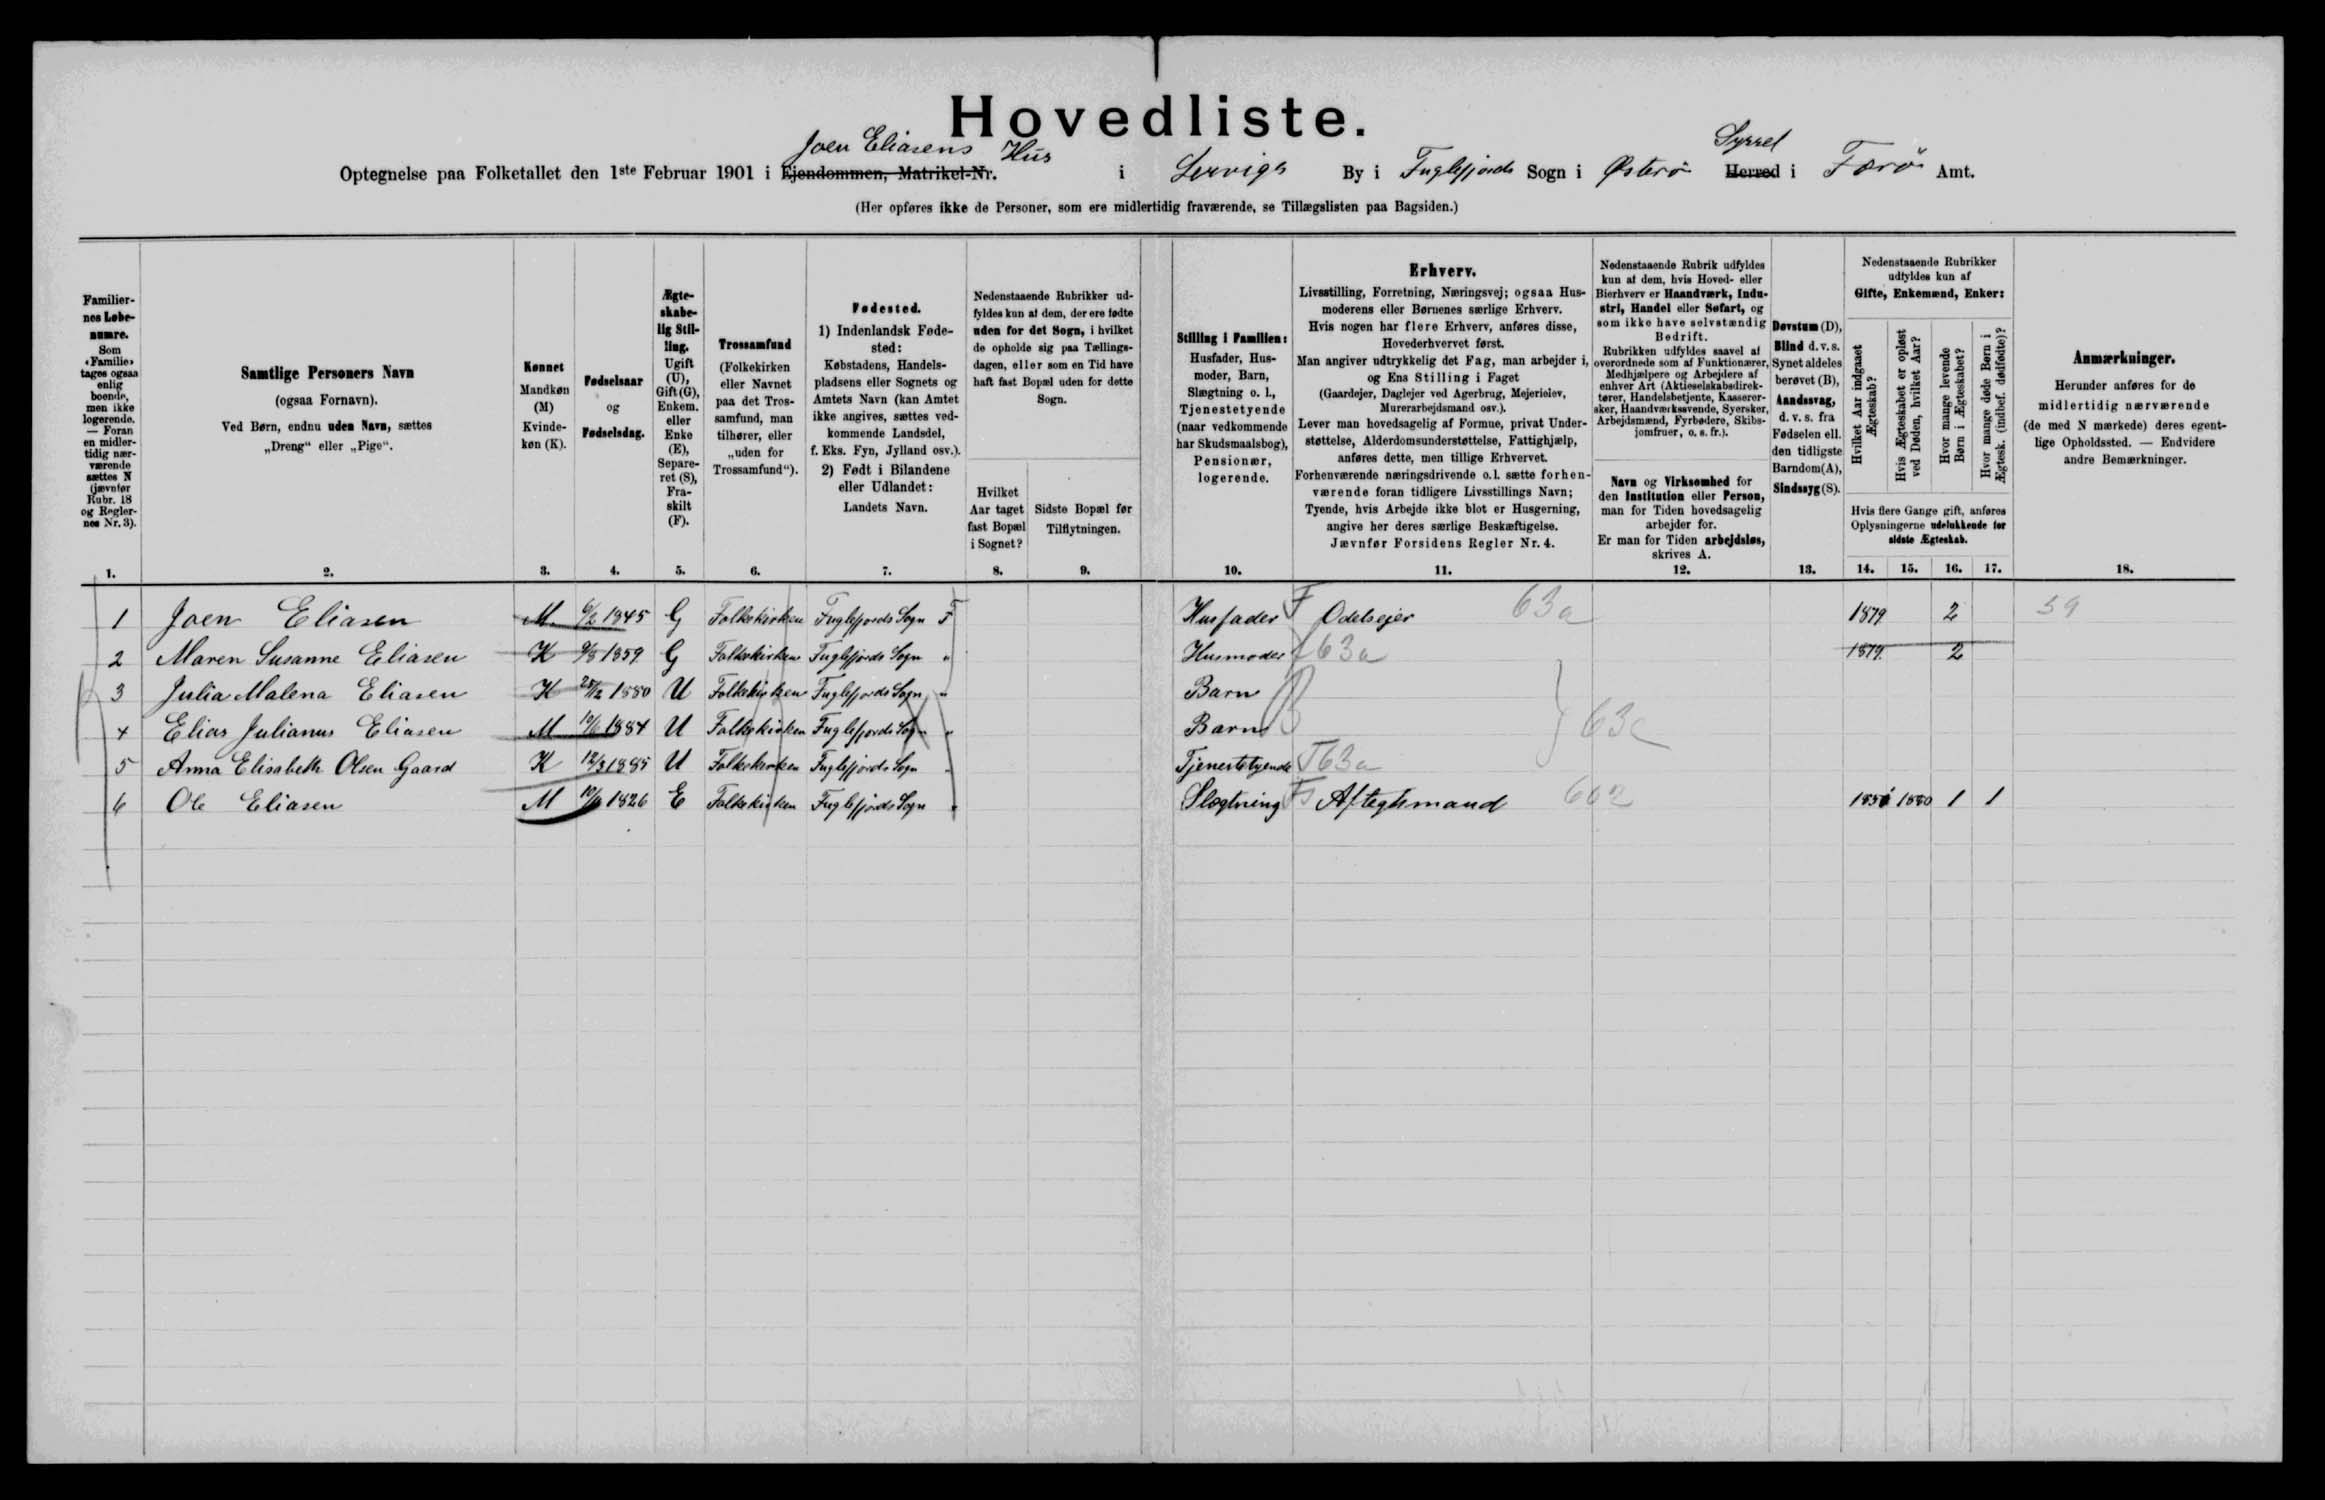 Hovedliste.
Joen Eliasens Hus
Syssel
Optegnelse paa Folketallet den 1ste Februar 1901 i Ejendommen, Matrikel-Nr. i Lervigs By i Fuglefjords Sogn i Østerø Herred i Færø Amt.
(Her opføres ikke de Personer, som ere midlertidig fraværende, se Tillægslisten paa Bagsiden.)
Familier-
nes Løbe-
numre.
Som
«Familie»
tages ogsaa
enlig
boende,
men ikke
logerende.
— Foran
en midler-
tidig nær-
værende
sættes N
(jævnfør
Rubr. 18
og Regler-
nes Nr. 3).
1.
Samtlige Personers Navn
(ogsaa Fornavn).
Ved Børn, endnu uden Navn, sættes
„Dreng“ eller „Pige“.
2.
Kønnet
Mandkøn
(M)
Kvinde-
køn (K).
3.
Fødselsaar
og
Fødselsdag.
4.
Ægte-
skabe-
lig Stil-
ling.
Ugift
(U),
Gift (G),
Enkem.
eller
Enke
(E),
Separe-
ret (S),
Fra-
skilt
(F).
5.
Trossamfund
(Folkekirken
eller Navnet
paa det Tros-
samfund, man
tilhører, eller
„uden for
Trossamfund“).
6.
Fødested.
1) Indenlandsk Føde-
sted:
Købstadens, Handels-
pladsens eller Sognets og
Amtets Navn (kan Amtet
ikke angives, sættes ved-
kommende Landsdel,
f. Eks. Fyn, Jylland osv.).
2) Født i Bilandene
eller Udlandet:
Landets Navn.
7.
Nedenstaaende Rubrikker ud-
fyldes kun af dem, der ere fødte
uden for det Sogn, i hvilket
de opholde sig paa Tællings-
dagen, eller som en Tid have
haft fast Bopæl uden for dette
Sogn.
Hvilket
Aar taget
fast Bopæl
i Sognet?
8.
Sidste Bopæl før
Tilflytningen.
9.
Stilling i Familien:
Husfader, Hus-
moder, Barn,
Slægtning o. l.,
Tjenestetyende
(naar vedkommende
har Skudsmaalsbog),
Pensionær,
logerende.
10.
Erhverv.
Livsstilling, Forretning, Næringsvej; ogsaa Hus-
moderens eller Børnenes særlige Erhverv.
Hvis nogen har flere Erhverv, anføres disse,
Hovederhvervet først.
Man angiver udtrykkelig det Fag, man arbejder i,
og Ens Stilling i Faget
(Gaardejer, Daglejer ved Agerbrug, Mejerielev,
Murerarbejdsmand osv.).
Lever man hovedsagelig af Formue, privat Under-
støttelse, Alderdomsunderstøttelse, Fattighjælp,
anføres dette, men tillige Erhvervet.
Forhenværende næringsdrivende o. l. sætte forhen-
værende foran tidligere Livsstillings Navn;
Tyende, hvis Arbejde ikke blot er Husgerning,
angive her deres særlige Beskæftigelse.
Jævnfør Forsidens Regler Nr. 4.
11.
Nedenstaaende Rubrik udfyldes
kun af dem, hvis Hoved- eller
Bierhverv er Haandværk, Indu-
stri, Handel eller Søfart, og
som ikke have selvstændig
Bedrift.
Rubrikken udfyldes saavel af
overordnede som af Funktionærer,
Medhjælpere og Arbejdere af
enhver Art (Aktieselskabsdirek-
tører, Handelsbetjente, Kasserer-
sker, Haandværkssvende, Syersker,
Arbejdsmænd, Fyrbødere, Skibs-
jomfruer, o. s. fr.).
Navn og Virksomhed for
den Institution eller Person,
man for Tiden hovedsagelig
arbejder for.
Er man for Tiden arbejdsløs,
skrives A.
12.
Døvstum (D),
Blind d. v. s.
Synet aldeles
berøvet (B),
Aandssvag,
d. v. s. fra
Fødselen ell.
den tidligste
Barndom (A),
Sindssyg (S).
13.
Nedenstaaende Rubrikker
udfyldes kun af
Gifte, Enkemænd, Enker:
Hvilket Aar indgaaet
Ægteskab?
Hvis Ægteskabet er opløst
ved Døden, hvilket Aar?
Hvor mange levende
Børn i Ægteskabet?
Hvor mange døde Børn i
Ægtesk. (indbef. dødfødte)?
Hvis flere Gange gift, anføres
Oplysningerne udelukkende for
sidste Ægteskab.
14. 15. 16. 17.
Anmærkninger.
Herunder anføres for de
midlertidig nærværende
(de med N mærkede) deres egent-
lige Opholdssted. — Endvidere
andre Bemærkninger.
18.
1 Joen Eliasen M. 6/2 1845 G Folkekirken Fuglefjords Sogn F Husfader F Odelsejer 63a 1879 2 59
2 Maren Susanne Eliasen K 9/8 1859 G Folkekirken Fuglefjords Sogn " Husmoder 63a 1879 2
3 Julia Malena Eliasen K 25/12 1880 U Folkekirken Fuglefjords Sogn " Barn
4 Elias Julianus Eliasen M 10/6 1884 U Folkekirken Fuglefjords Sogn " Barn B 63c
5 Anna Elisabeth Olsen Gaard K 12/3 1885 U Folkekirken Fuglefjords Sogn " Tjenestetyende T 63a
6 Ole Eliasen M 1826 E Folkekirken Fuglefjords Sogn " Slægtning Aftegtsmand 602 1880 1 1